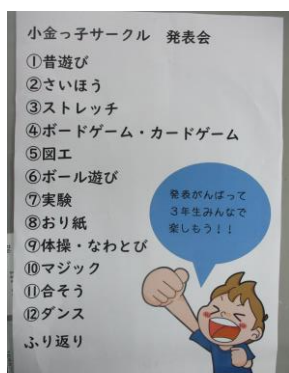 小金っ子サークル　発表会
①昔遊び
②さいほう
③ストレッチ
④ボードゲーム・カードゲーム
⑤図工
⑥ボール遊び
⑦実験
⑧おり紙
⑨体操・なわとび
⑩マジック
⑪合そう
⑫ダンス
ふり返り
発表がんばって
3年生みんなで
楽しもう！！